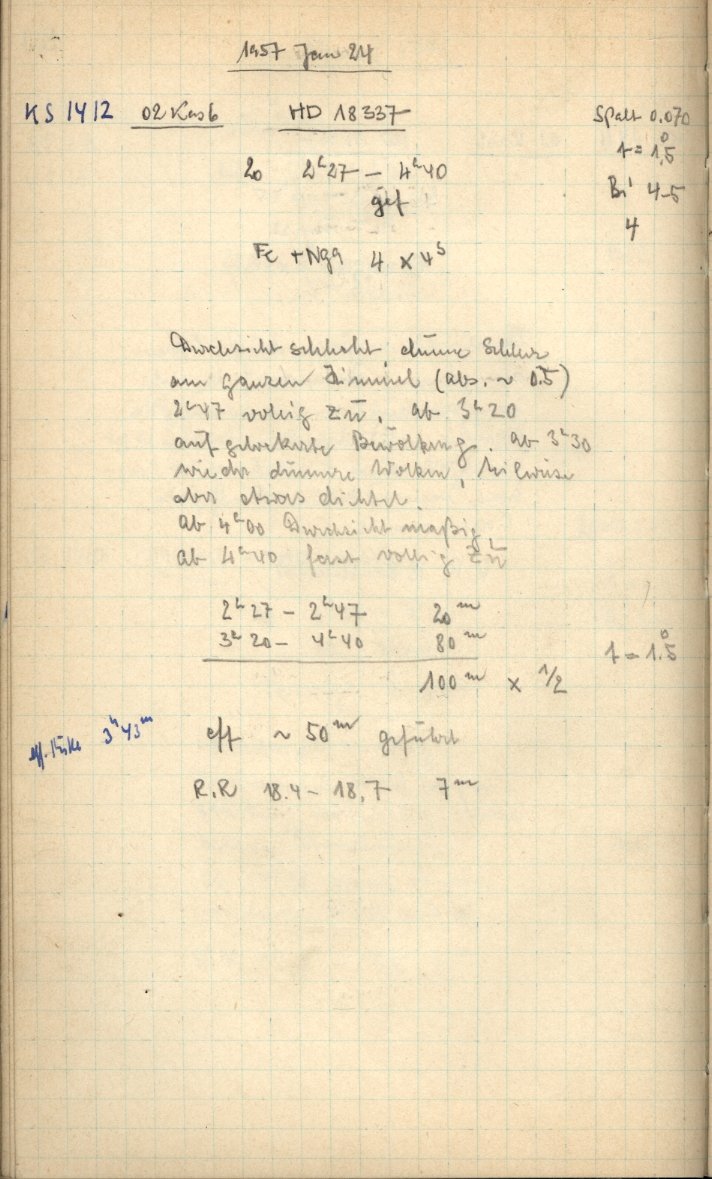 1957 Jan 24
KS 1412 02 Kas 6 HD 18337 Spalt 0.070
t = 1,5°
20 2h27 – 4h40 Bi 4-5
gef 4
Fe + Nga 4 x 4s
Durchsicht schlecht, dünne Schleier
am ganzen Himmel (abs. ~ 0.5)
2h47 völlig zū. ab 3h20
aufgelockerte Bewölkung. ab 3h30
wieder dünnere Wolken, teilweise
aber etwas dichter.
ab 4h00 Durchsicht mäßig
ab 4h40 fast völlig zū
2h27 – 2h47 20m
3h20 – 4h40 80m t = 1.5°
100m x 1/2
eff. 3h43m eff ~ 50m geführt
R.R 18.4 – 18,7 7m